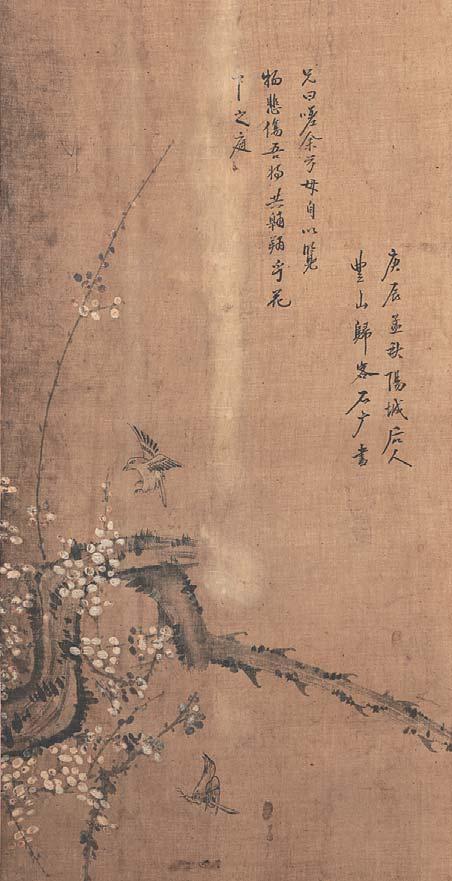 庚辰孟秋陽城后人
豊山歸客石广書
兄曰嗟余兮母自以覽
物悲傷吾将共翱翔乎花
下之庭